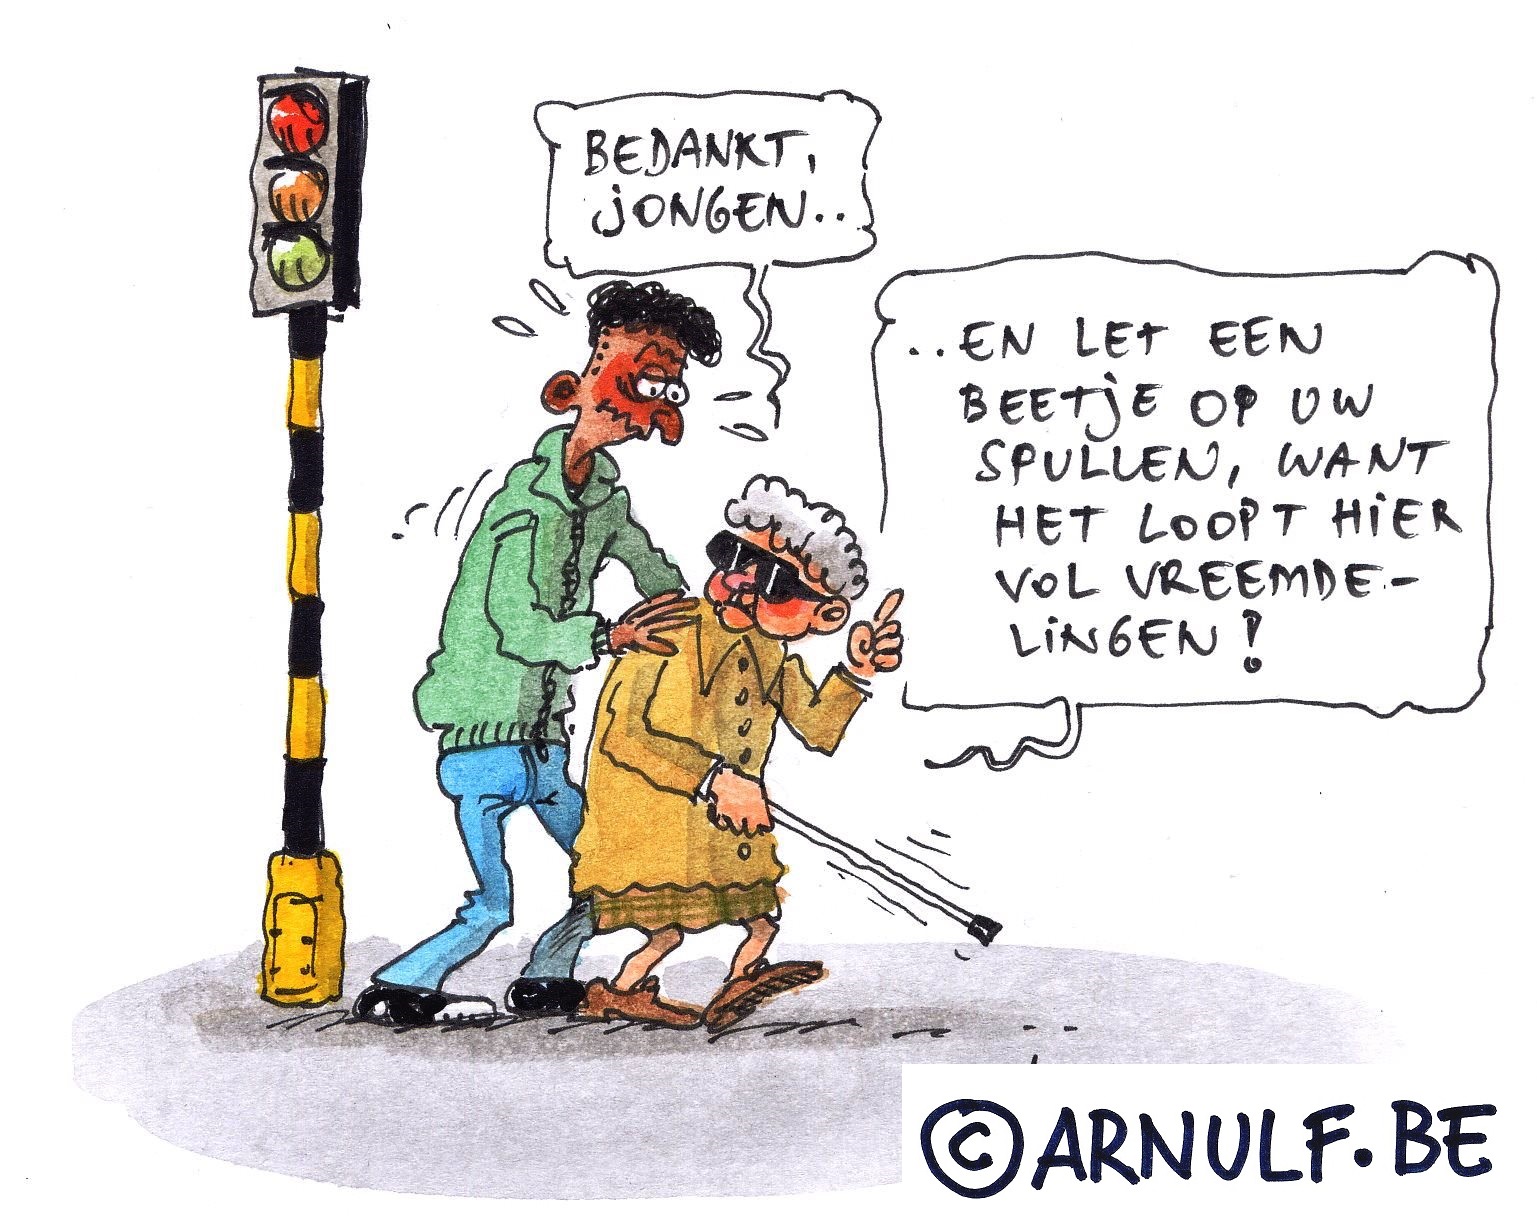 BEDANKT,
jONGEN..
..EN LET EEN
BEETjE OP UW
SPULLEN, WANT
HET LOOPT HiER
VOL VREEMDE-
LiNGEN!
©ARNULF.BE